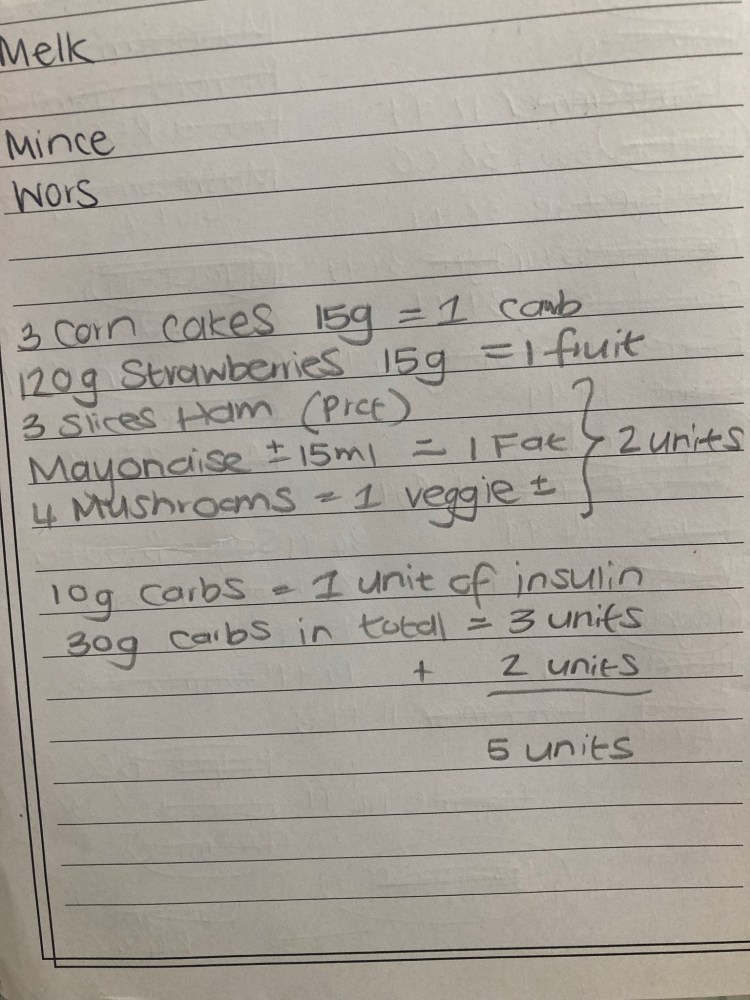 Melk
Mince
Wors
3 Corn cakes 15g = 1 carb
120g Strawberries 15g = 1 fruit
3 Slices Ham (Prct)
Mayonaise ± 15ml = 1 Fat } 2 units
4 Mushrooms = 1 veggie ±
10g carbs = 1 unit of insulin
30g carbs in total = 3 units
+ 2 units
5 units